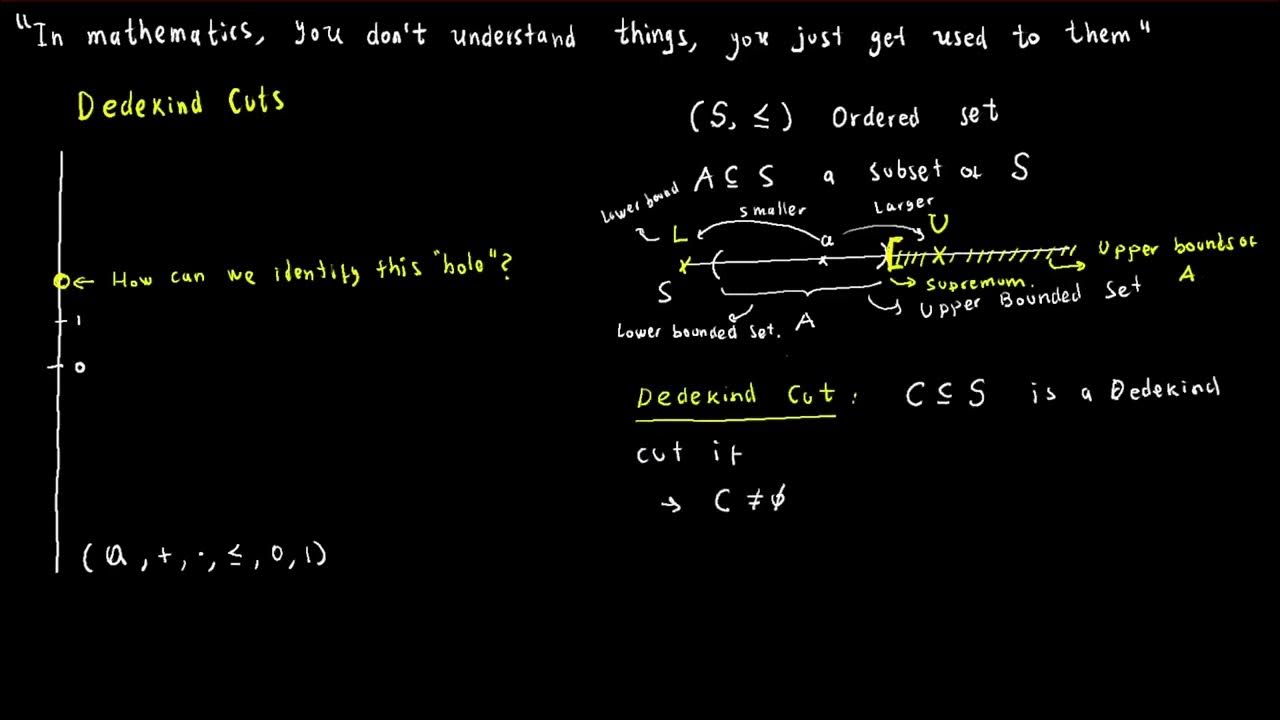 "In mathematics, you don't understand things, you just get used to them"
Dedekind Cuts
← How can we identify this "hole"?
1
0
(Q, +, ·, ≤, 0, 1)
(S, ≤) Ordered set
A ⊆ S a subset of S
Lower bound
smaller
Larger
L
a
U
Upper bounds of
A
S
supremum.
Upper Bounded Set
Lower bounded set.
A
Dedekind Cut: C ⊆ S is a Dedekind
cut if
→ C ≠ ∅